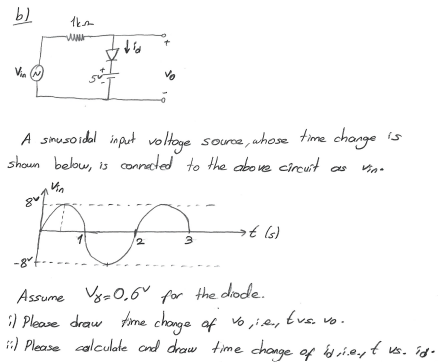 b)
1kΩ
+
↓ id
Vin
N
+
5V
-
Vo
-
A sinusoidal input voltage source, whose time change is
shown below, is connected to the above circuit as Vin.
Vin
8V
1
2
3
t (s)
-8V
Assume Vγ=0,6V for the diode.
i) Please draw time change of vo, i.e., t vs. vo.
ii) Please calculate and draw time change of id, i.e., t vs. id.